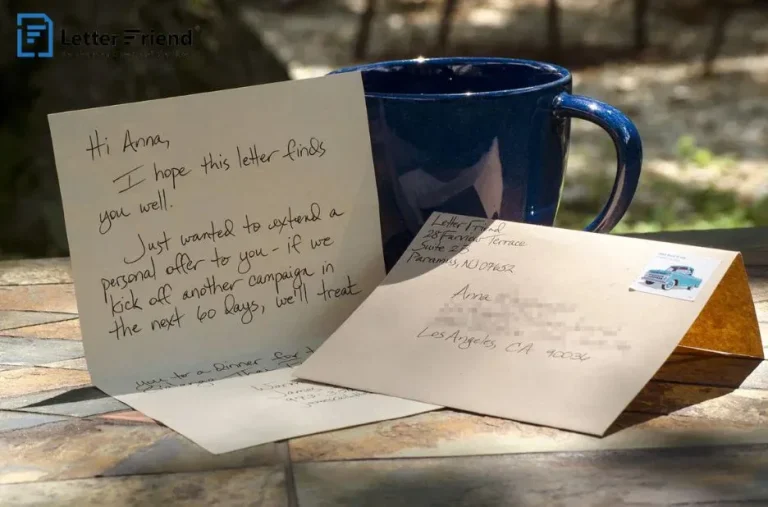 LetterFriend
Hi Anna,
I hope this letter finds
you well.
Just wanted to extend a
personal offer to you - if we
kick off another campaign in
the next 60 days, we'll treat
you to a Dinner for
Letter Friend
28 Fairview Terrace
Suite 2B
Paramus, NJ 07652
Anna
Los Angeles, CA 90036